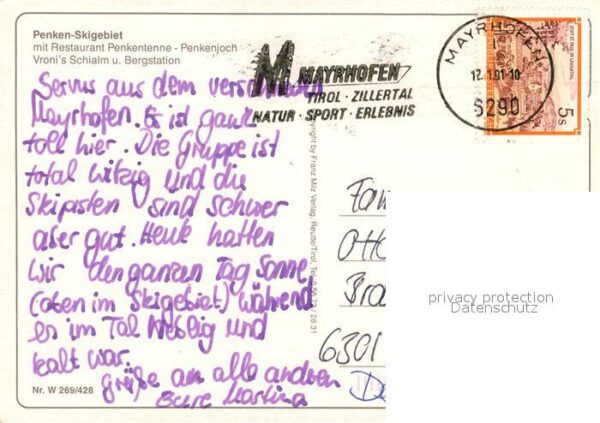 Penken-Skigebiet
mit Restaurant Penkentenne - Penkenjoch
Vroni's Schialm u. Bergstation
Servus aus dem
Mayrhofen. Es ist ganz
toll hier. Die Gruppe ist
total witzig und die
Skipisten sind schwer
aber gut. Heute hatten
wir den ganzen Tag Sonne
(oben im Skigebiet) während
es im Tal neblig und
kalt war.
Grüße an alle anderen
Eure Martina
Nr. W 269/428
M MAYRHOFEN
TIROL · ZILLERTAL
NATUR · SPORT · ERLEBNIS
MAYRHOFEN
6290
5 S
Copyright by Franz Milz Verlag, Reutte/Tirol, Tel.
Fam
Otto
Bra
6301
privacy protection
Datenschutz